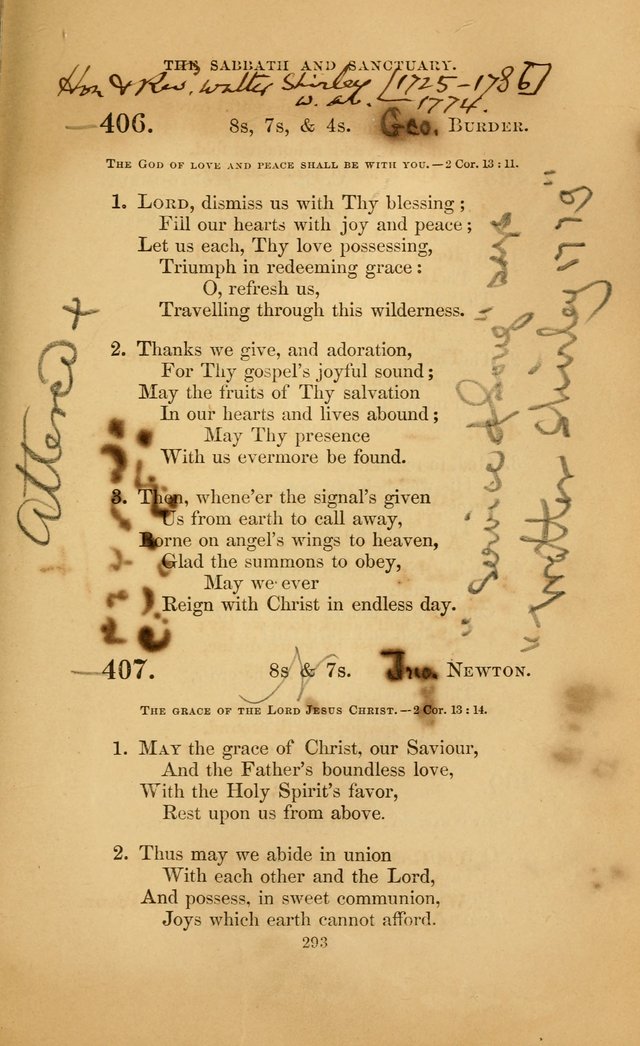 THE SABBATH AND SANCTUARY.
Hon & Rev. Walter Shirley [1725-1786]
w. ab. — 1774.
406. 8s, 7s, & 4s. Geo. BURDER.
THE GOD OF LOVE AND PEACE SHALL BE WITH YOU.—2 Cor. 13 : 11.
1. LORD, dismiss us with Thy blessing;
Fill our hearts with joy and peace;
Let us each, Thy love possessing,
Triumph in redeeming grace:
O, refresh us,
Travelling through this wilderness.
2. Thanks we give, and adoration,
For Thy gospel's joyful sound;
May the fruits of Thy salvation
In our hearts and lives abound;
May Thy presence
With us evermore be found.
3. Then, whene'er the signal's given
Us from earth to call away,
Borne on angel's wings to heaven,
Glad the summons to obey,
May we ever
Reign with Christ in endless day.
Altered +
"Service of Song" says
"Walter Shirley 1779"
407. 8s & 7s. Jno. NEWTON.
THE GRACE OF THE LORD JESUS CHRIST.—2 Cor. 13 : 14.
1. MAY the grace of Christ, our Saviour,
And the Father's boundless love,
With the Holy Spirit's favor,
Rest upon us from above.
2. Thus may we abide in union
With each other and the Lord,
And possess, in sweet communion,
Joys which earth cannot afford.
293